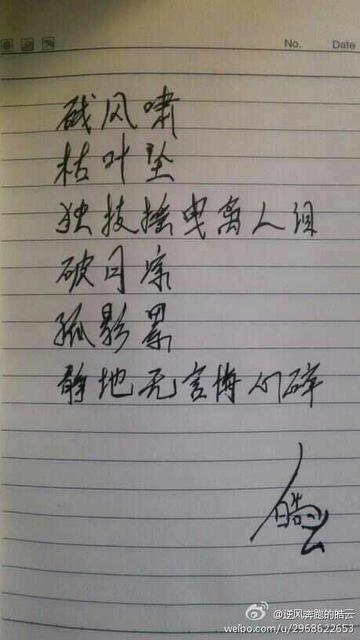 No. Date
风啸
枯叶坠
独枝摇曳离人泪
破月
孤影累
静地无言悔心碎
皓云
@逆风奔跑的皓云
weibo.com/u/2968622653